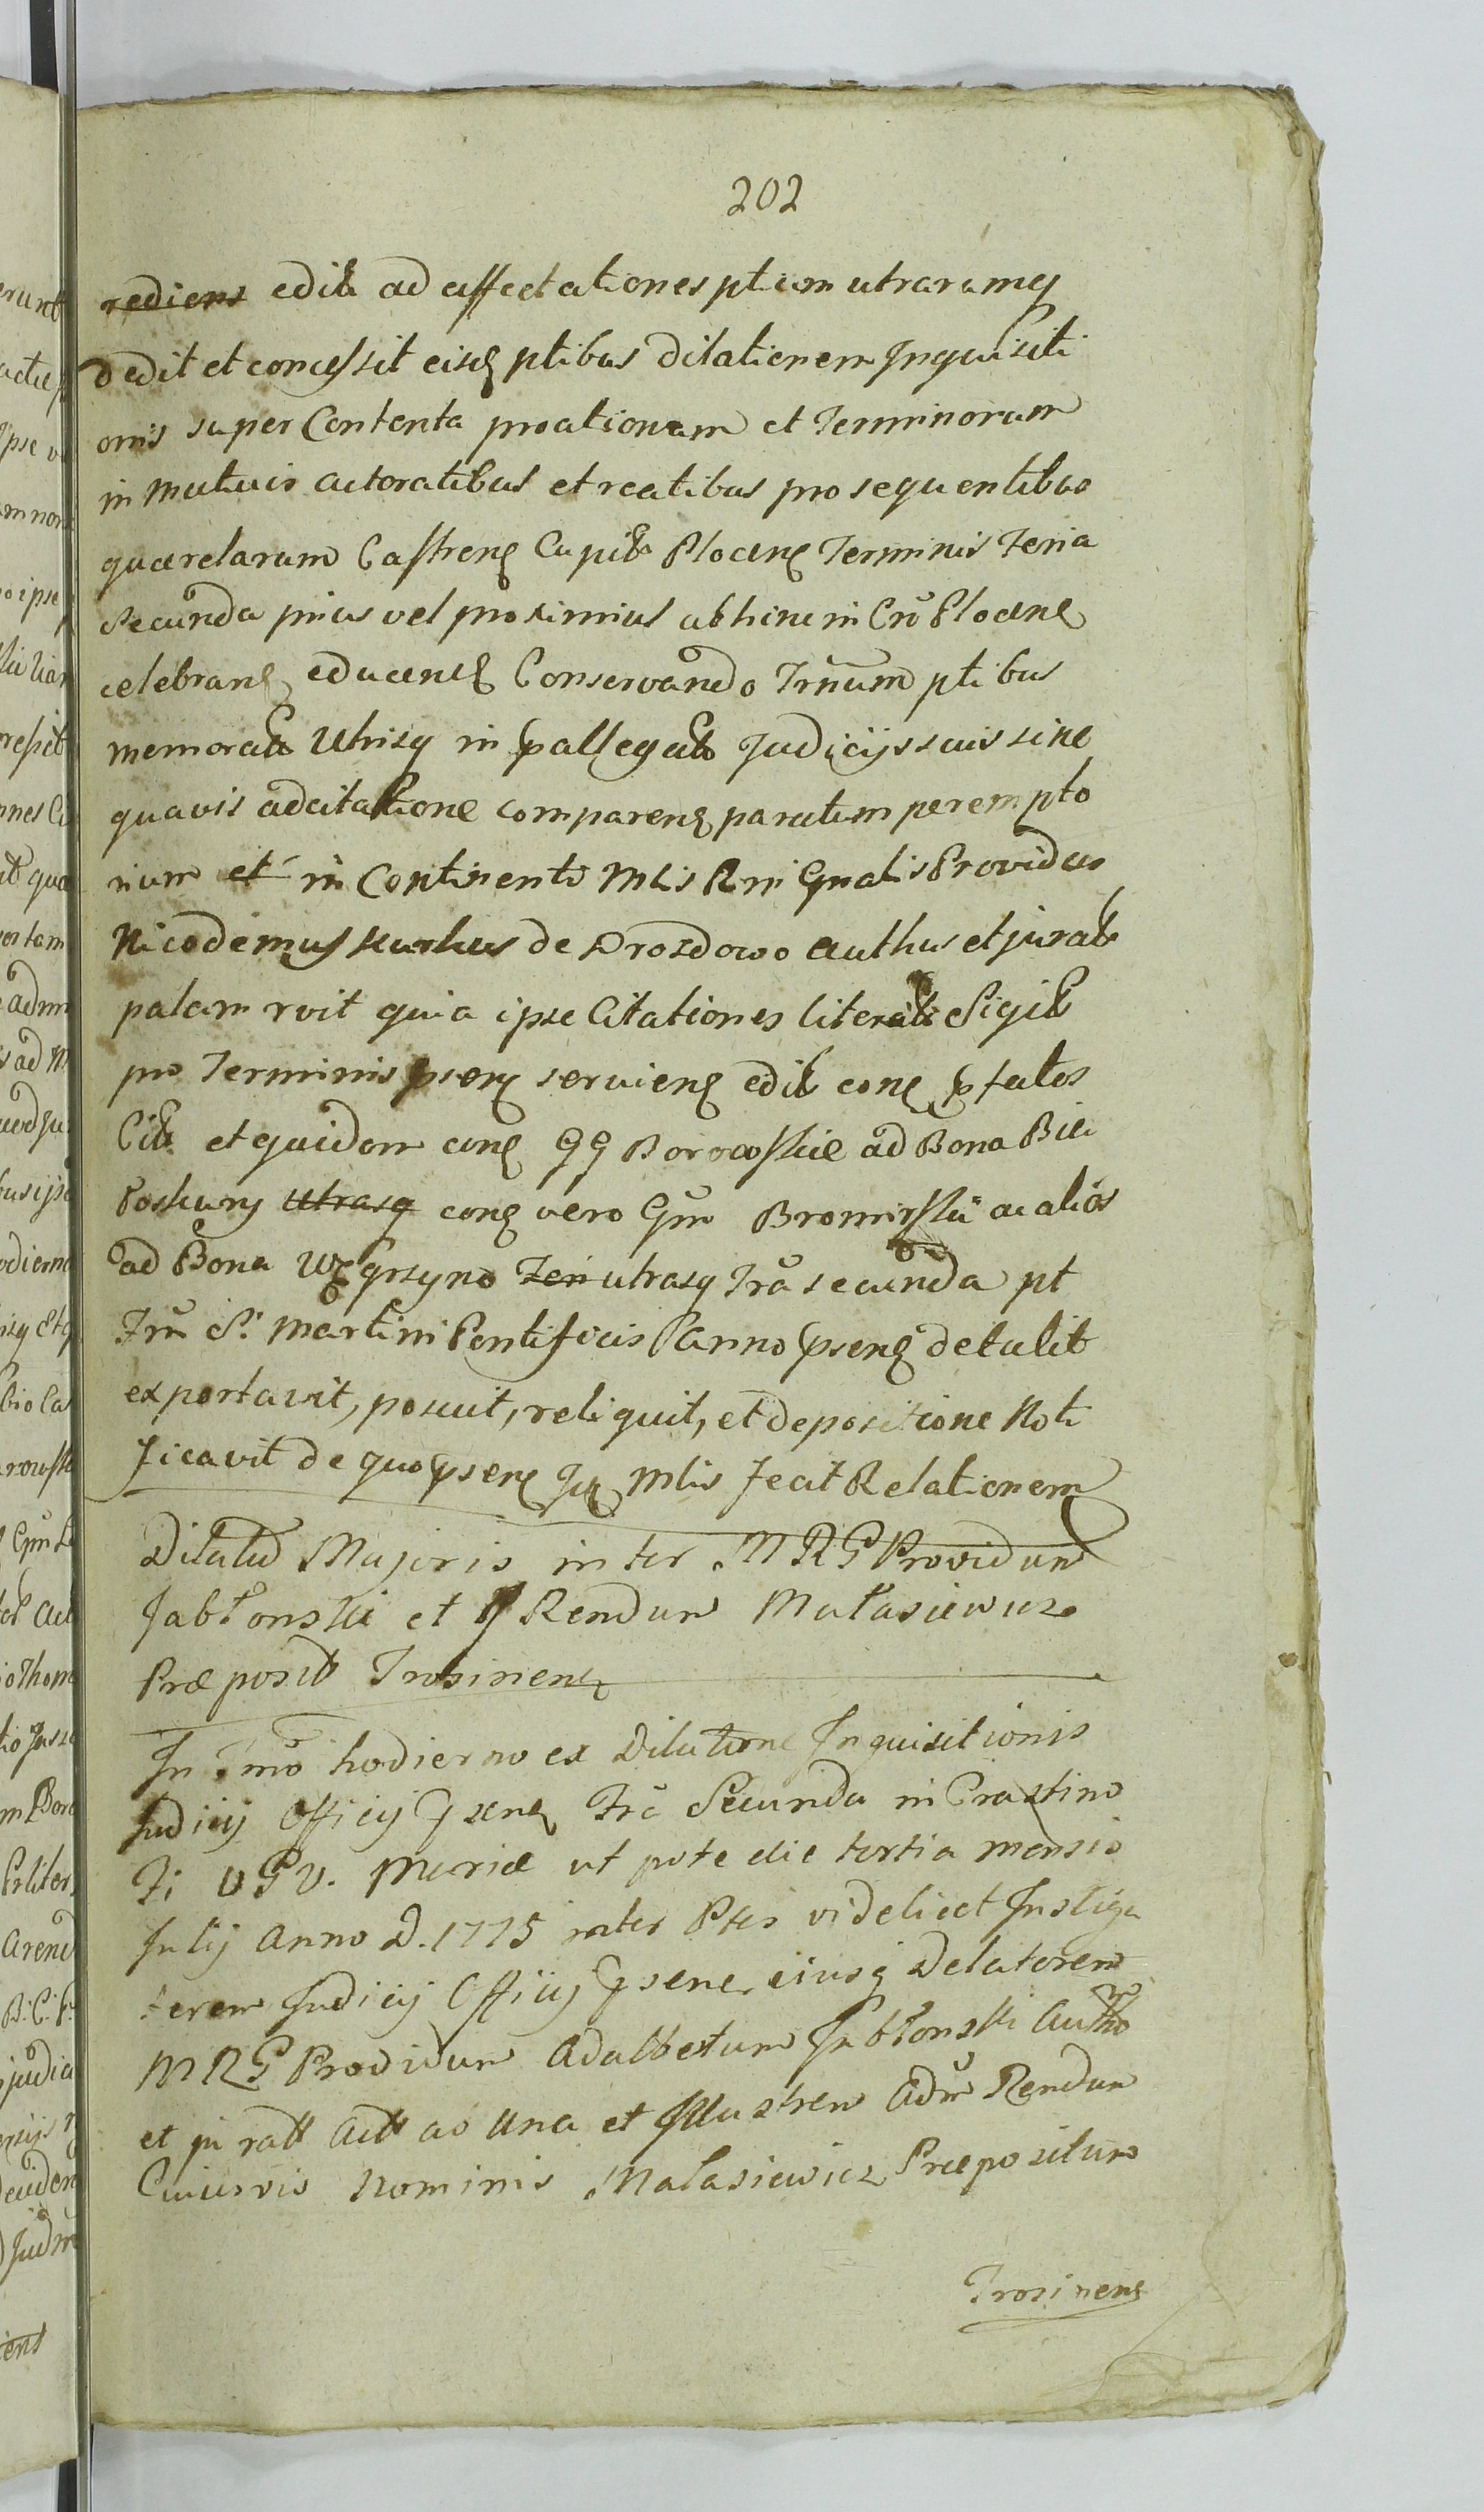 202
rediens edit ad affectationes ptium utrarumq
dedit et concessit eisq ptibus Dilationem Inquisiti
onis super Contenta proationum et Terminorum
in mutuis actoratibus et reatibus pro sequentibus
quærelarum Castrenq Capit Plocenq Terminis Feria
secunda prius vel proximius abhinc in Crõ Plocenq
celebranq educenq Conservando Trnum ptibus
memorat Utrisq in pallegat Judicijs suis sine
quavis adcitatione comparenq paratum perempto
rium et in Continenti Mlis Rni Gnalis Providus
Nicodemus Kurkus de Drozdowo authus et jurat
palam rvit quia ipse Citationes literat Sigil
pro Terminis psenq servienq edit conq pfatos
Cit et quidem conq GG Borowskie ad Bona Bia
Poskury utrasq conq vero Gm Bromirski ac alios
ad Bona Węgrzyno Feri utrasq Fra secunda pt
Frm S. Martini Pontificis Anno psenq detulit
exportavit, posuit, reliquit, et depositione Noti
ficavit de quo psenq Jq Mlis fecit Relationem
Dilatio Majoris inter MRG Providum
Jabłonski et Rendum Małasiewicz
Præposit Trosinenq
In Tmõ hodierno ex Dilatione Inquisitionis
Judicij Officij psenq Frã Secunda in Crastino
Fi V G V. Mariæ ut pote die tertia mensis
Julij Anno D. 1775 inter Ptes videlicet Instiga
torem Judicij Officij psenq eiusq Delatorem
MRG Providum Adalbertum Jabłonski Autho
et ju ratt Actt ac Una et Illustrem Adm Rendum
Cuiusvis Nominis Małasiewicz Præpositum
Trosinenq